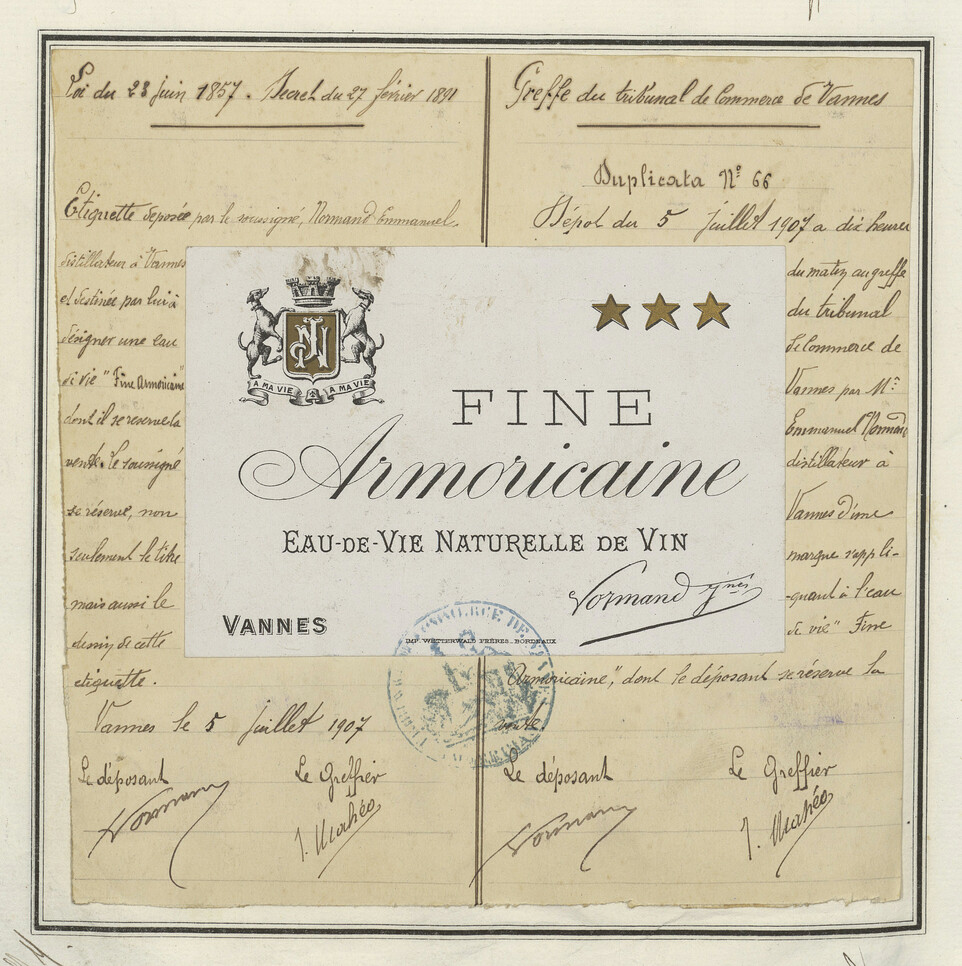 Loi du 23 Juin 1857. Decret du 27 février 1891
Etiquette déposée par le soussigné, Normand Emmanuel
distillateur à Vannes
et destinée par lui à
désigner une eau
de vie "Fine Armoricaine"
dont il se reserve la
vente. Le soussigné
se réserve, non
seulement le titre
mais aussi le
dessin de cette
etiquette.
Vannes le 5 Juillet 1907
Le déposant Le Greffier
Normand J. Mahéo
Greffe du tribunal de Commerce de Vannes
Duplicata N° 66
Dépot du 5 Juillet 1907 a dix heures
du matin au greffe
du tribunal
de Commerce de
Vannes par Mr
Emmanuel Normand
distillateur à
Vannes d'une
marque s'appli-
-quant à l'eau
de vie "Fine
Armoricaine", dont le déposant se réserve la
vente.
Le déposant Le Greffier
Normand J. Mahéo
A MA VIE A MA VIE
FINE
Armoricaine
EAU-DE-VIE NATURELLE DE VIN
Normand Jnes
VANNES
IMP. WETTERWALD FRÈRES_BORDEAUX